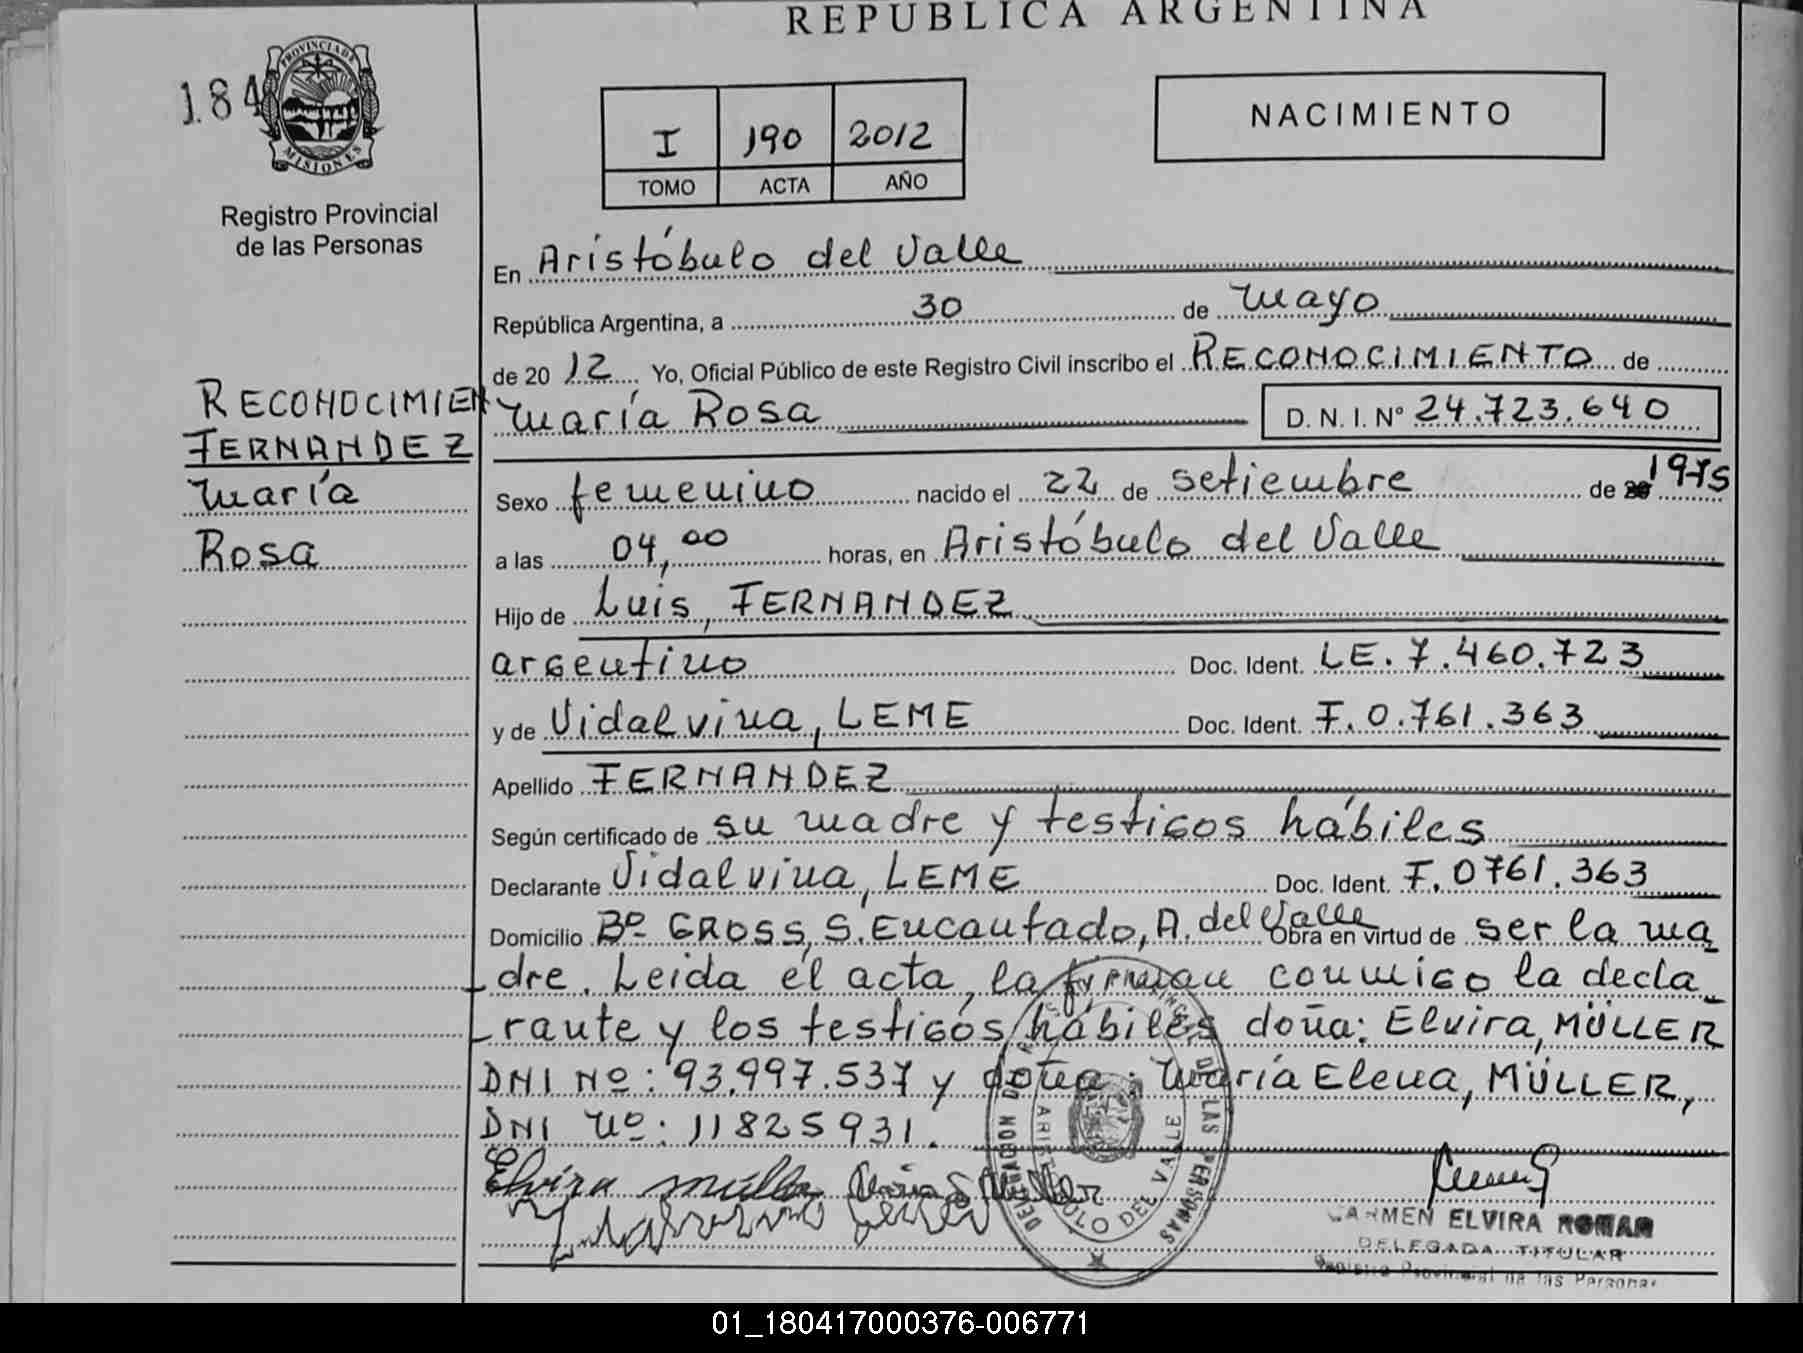 REPUBLICA ARGENTINA
184
PROVINCIA DE MISIONES
Registro Provincial
de las Personas
I 190 2012
TOMO ACTA AÑO
NACIMIENTO
En Aristóbulo del Valle
República Argentina, a 30 de mayo
de 2012 Yo, Oficial Público de este Registro Civil inscribo el RECONOCIMIENTO de
María Rosa D. N. I. Nº 24.723.640
RECONOCIMIEN
FERNANDEZ
María
Rosa
Sexo femenino nacido el 22 de setiembre de 20 1975
a las 04,00 horas, en Aristóbulo del Valle
Hijo de Luis, FERNANDEZ
argentino Doc. Ident. LE. 7.460.723
y de Vidalvina, LEME Doc. Ident. F. 0.761.363
Apellido FERNANDEZ
Según certificado de su madre y testigos hábiles
Declarante Vidalvina, LEME Doc. Ident. F. 0761.363
Domicilio Bº GROSS, S. Encantado, A. del Valle Obra en virtud de ser la ma
dre. Leida el acta, la firman conmigo la decla
rante y los testigos hábiles doña: Elvira, MÜLLER
DNI Nº: 93.997.537 y doña: María Elena, MÜLLER,
DNI Nº: 11825931.
Elvira Müller
CARMEN ELVIRA ROMAN
DELEGADA TITULAR
Registro Provincial de las Personas
ARISTOBULO DEL VALLE
01_180417000376-006771